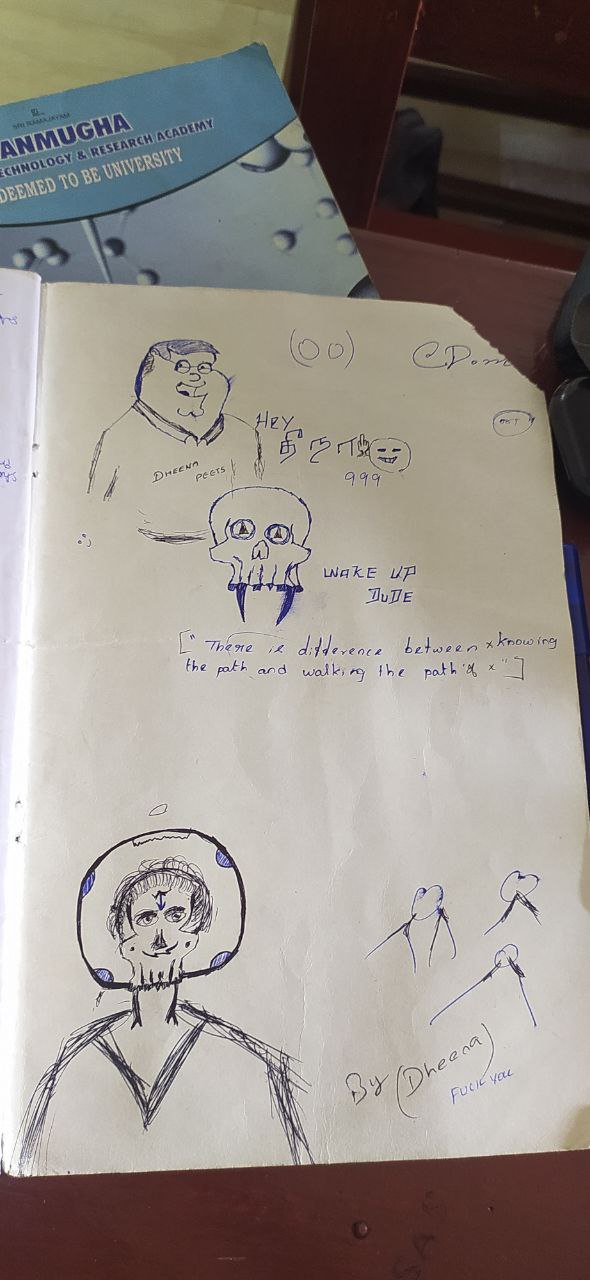 SRI RAMAJAYAM
ANMUGHA
ECHNOLOGY & RESEARCH ACADEMY
DEEMED TO BE UNIVERSITY
(00)
C.Dom
HEY
தீனா
999
DHEENA
PEETS
WAKE UP
DUDE
[" There is difference between × knowing
the path and walking the path " × "]
By (Dheena)
FUCK YOU